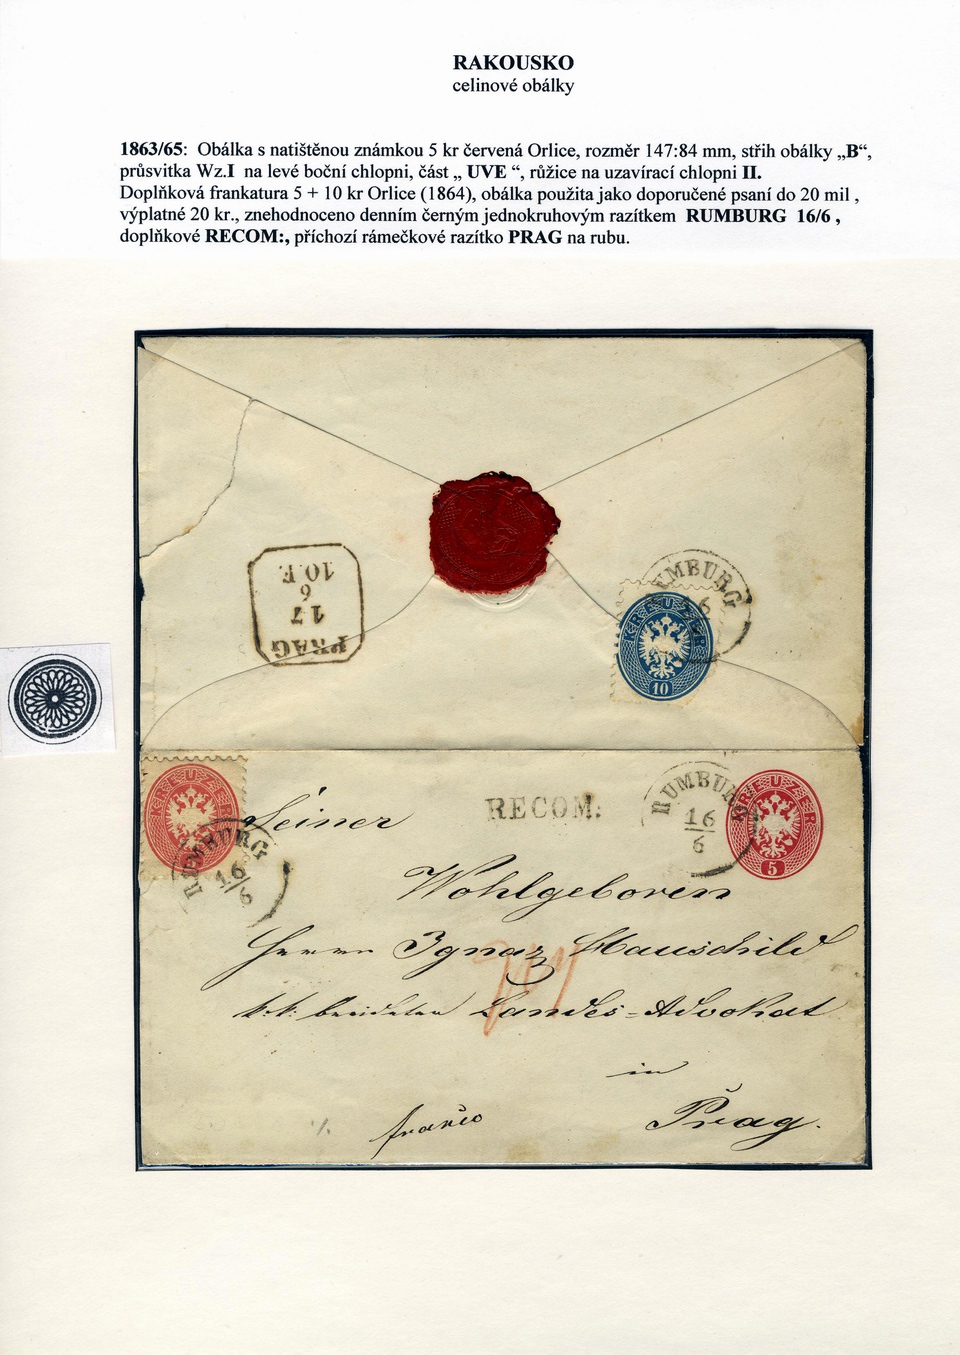 RAKOUSKO
celinové obálky
1863/65: Obálka s natištěnou známkou 5 kr červená Orlice, rozměr 147:84 mm, střih obálky „B“,
průsvitka Wz.I na levé boční chlopni, část „ UVE “, růžice na uzavírací chlopni II.
Doplňková frankatura 5 + 10 kr Orlice (1864), obálka použita jako doporučené psaní do 20 mil ,
výplatné 20 kr., znehodnoceno denním černým jednokruhovým razítkem RUMBURG 16/6 ,
doplňkové RECOM:, příchozí rámečkové razítko PRAG na rubu.
PRAG
17
6
10.F.
RUMBURG
6
KREUZER
10
KREUZER
RUMBURG
16
6
RECOM:
RUMBURG
16
6
KREUZER
5
Seiner
Wohlgeboren
Herrn Ignaz Hauschild
k. k. beeideten Landes=Advokat
in
franco
Prag.